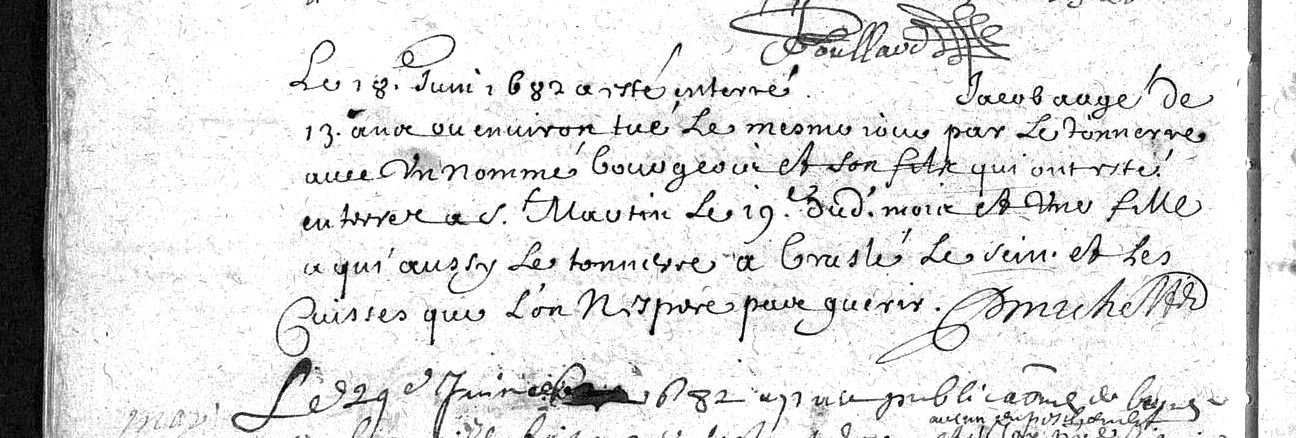 Boullard
Le 18.e Juin 1682 a esté enterré. Jacob augé de
13. ans ou environ tué Le mesme iour par Le tonnerre
avec Un nommé bourgeois et son fils qui ont esté
enterrez a S.t Martin Le 19.e dud. mois et Une fille
a qui aussy Le tonnerre a bruslé Le sein. et Les
Cuisses que L'on N'espere pas guerir.
Le 29e Juin 1682 publica͠on de
aucun